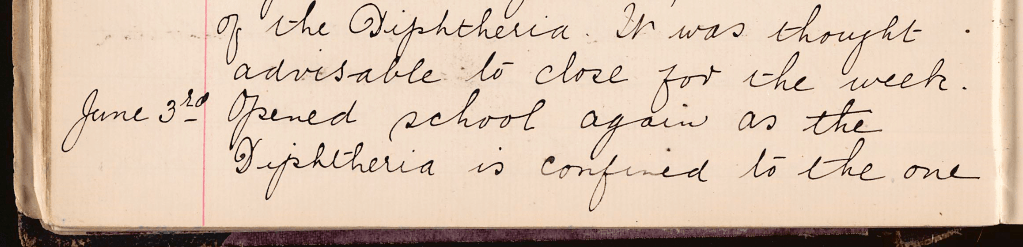 of the Diphtheria. It was thought
advisable to close for the week.
June 3rd Opened school again as the
Diphtheria is confined to the one